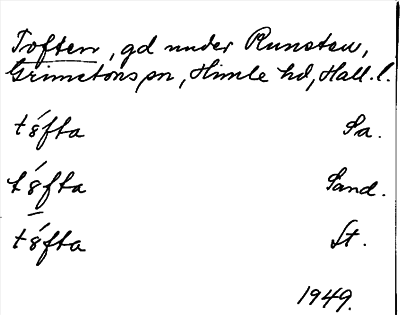 Toften, gd under Runsten,
Grimetons sn, Himle hd, Hall. l.
tó̆fta Sa.
tó̆fta Sand.
tó̆fta St.
1949.